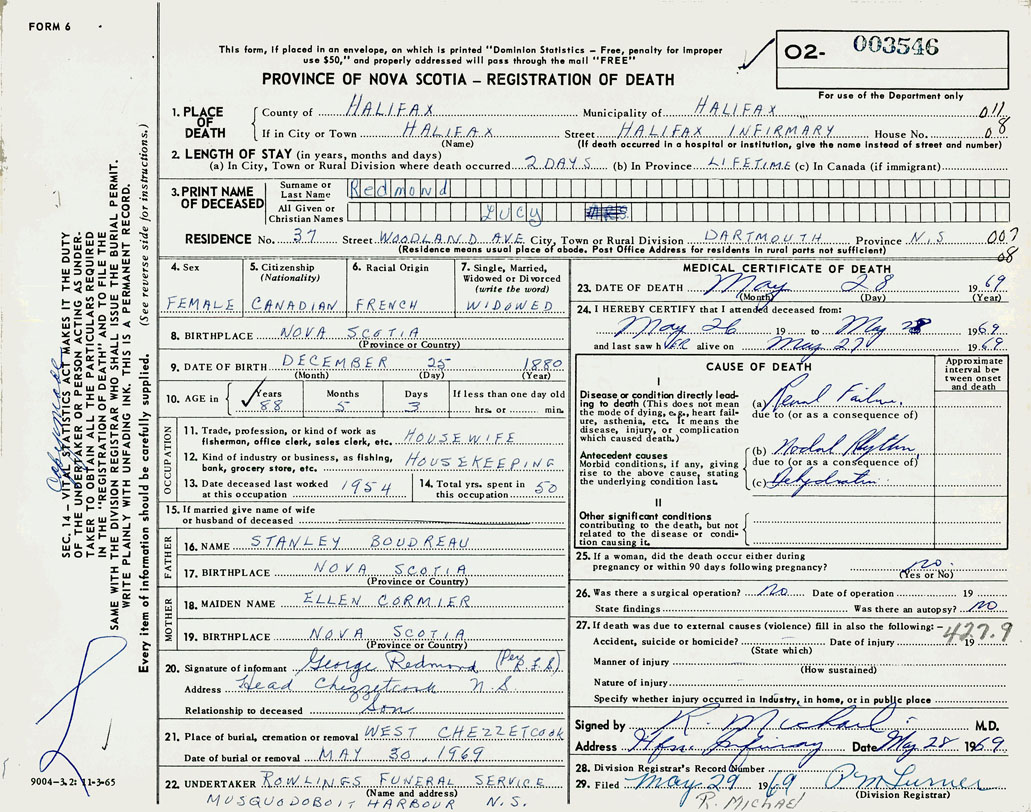 FORM 6
This form, if placed in an envelope, on which is printed "Dominion Statistics – Free, penalty for improper
use $50," and properly addressed will pass through the mail "FREE"
02- 003546
PROVINCE OF NOVA SCOTIA – REGISTRATION OF DEATH
For use of the Department only
1. PLACE OF DEATH
County of HALIFAX Municipality of HALIFAX 011
If in City or Town HALIFAX Street HALIFAX INFIRMARY House No. 08
(Name) (If death occurred in a hospital or institution, give the name instead of street and number)
2. LENGTH OF STAY (in years, months and days)
(a) In City, Town or Rural Division where death occurred 2 DAYS (b) In Province LIFETIME (c) In Canada (if immigrant)
3. PRINT NAME OF DECEASED
Surname or Last Name Redmond
All Given or Christian Names LUCY
RESIDENCE No. 37 Street WOODLAND AVE City, Town or Rural Division DARTMOUTH Province N.S 007
(Residence means usual place of abode. Post Office Address for residents in rural parts not sufficient) 08
4. Sex FEMALE
5. Citizenship (Nationality) CANADIAN
6. Racial Origin FRENCH
7. Single, Married, Widowed or Divorced (write the word) WIDOWED
8. BIRTHPLACE NOVA SCOTIA
(Province or Country)
9. DATE OF BIRTH DECEMBER 25 1880
(Month) (Day) (Year)
10. AGE in Years 88 Months 5 Days 3 If less than one day old hrs. or min.
OCCUPATION
11. Trade, profession, or kind of work as fisherman, office clerk, sales clerk, etc. HOUSEWIFE
12. Kind of industry or business, as fishing, bank, grocery store, etc. HOUSEKEEPING
13. Date deceased last worked at this occupation 1954
14. Total yrs. spent in this occupation 50
15. If married give name of wife or husband of deceased
FATHER
16. NAME STANLEY BOUDREAU
17. BIRTHPLACE NOVA SCOTIA
(Province or Country)
MOTHER
18. MAIDEN NAME ELLEN CORMIER
19. BIRTHPLACE NOVA SCOTIA
(Province or Country)
20. Signature of informant George Redmond
Address Head Chezzetcook N.S.
Relationship to deceased Son
21. Place of burial, cremation or removal WEST CHEZZETCOOK
Date of burial or removal MAY 30, 1969
22. UNDERTAKER ROWLINGS FUNERAL SERVICE
(Name and address)
MUSQUODOBOIT HARBOUR N.S.
MEDICAL CERTIFICATE OF DEATH
23. DATE OF DEATH May 28 1969
(Month) (Day) (Year)
24. I HEREBY CERTIFY that I attended deceased from:
May 26 19 to May 28 1969
and last saw hER alive on May 27 1969
CAUSE OF DEATH
Approximate interval between onset and death
I
Disease or condition directly leading to death (This does not mean the mode of dying, e.g., heart failure, asthenia, etc. It means the disease, injury, or complication which caused death.)
(a) Renal Failure
due to (or as a consequence of)
Antecedent causes
Morbid conditions, if any, giving rise to the above cause, stating the underlying condition last.
(b) Nodal Rhythm
due to (or as a consequence of)
(c) Dehydration
II
Other significant conditions contributing to the death, but not related to the disease or condition causing it.
25. If a woman, did the death occur either during pregnancy or within 90 days following pregnancy? no.
(Yes or No)
26. Was there a surgical operation? no Date of operation 19
State findings Was there an autopsy? no
27. If death was due to external causes (violence) fill in also the following:– 427.9
Accident, suicide or homicide? Date of injury 19
(State which)
Manner of injury
(How sustained)
Nature of injury
Specify whether injury occurred in industry, in home, or in public place
Signed by R. Michael M.D.
Address Hfx. Infirmary Date May 28 1969
28. Division Registrar's Record Number
29. Filed May 29 1969 P M Turner
(Division Registrar)
R. MICHAEL
SEC. 14 – VITAL STATISTICS ACT MAKES IT THE DUTY
OF THE UNDERTAKER OR PERSON ACTING AS UNDER-
TAKER TO OBTAIN ALL THE PARTICULARS REQUIRED
IN THE "REGISTRATION OF DEATH" AND TO FILE THE
SAME WITH THE DIVISION REGISTRAR WHO SHALL ISSUE THE BURIAL PERMIT.
WRITE PLAINLY WITH UNFADING INK. THIS IS A PERMANENT RECORD.
Every item of information should be carefully supplied. (See reverse side for instructions.)
9004-3.2: 11-3-65